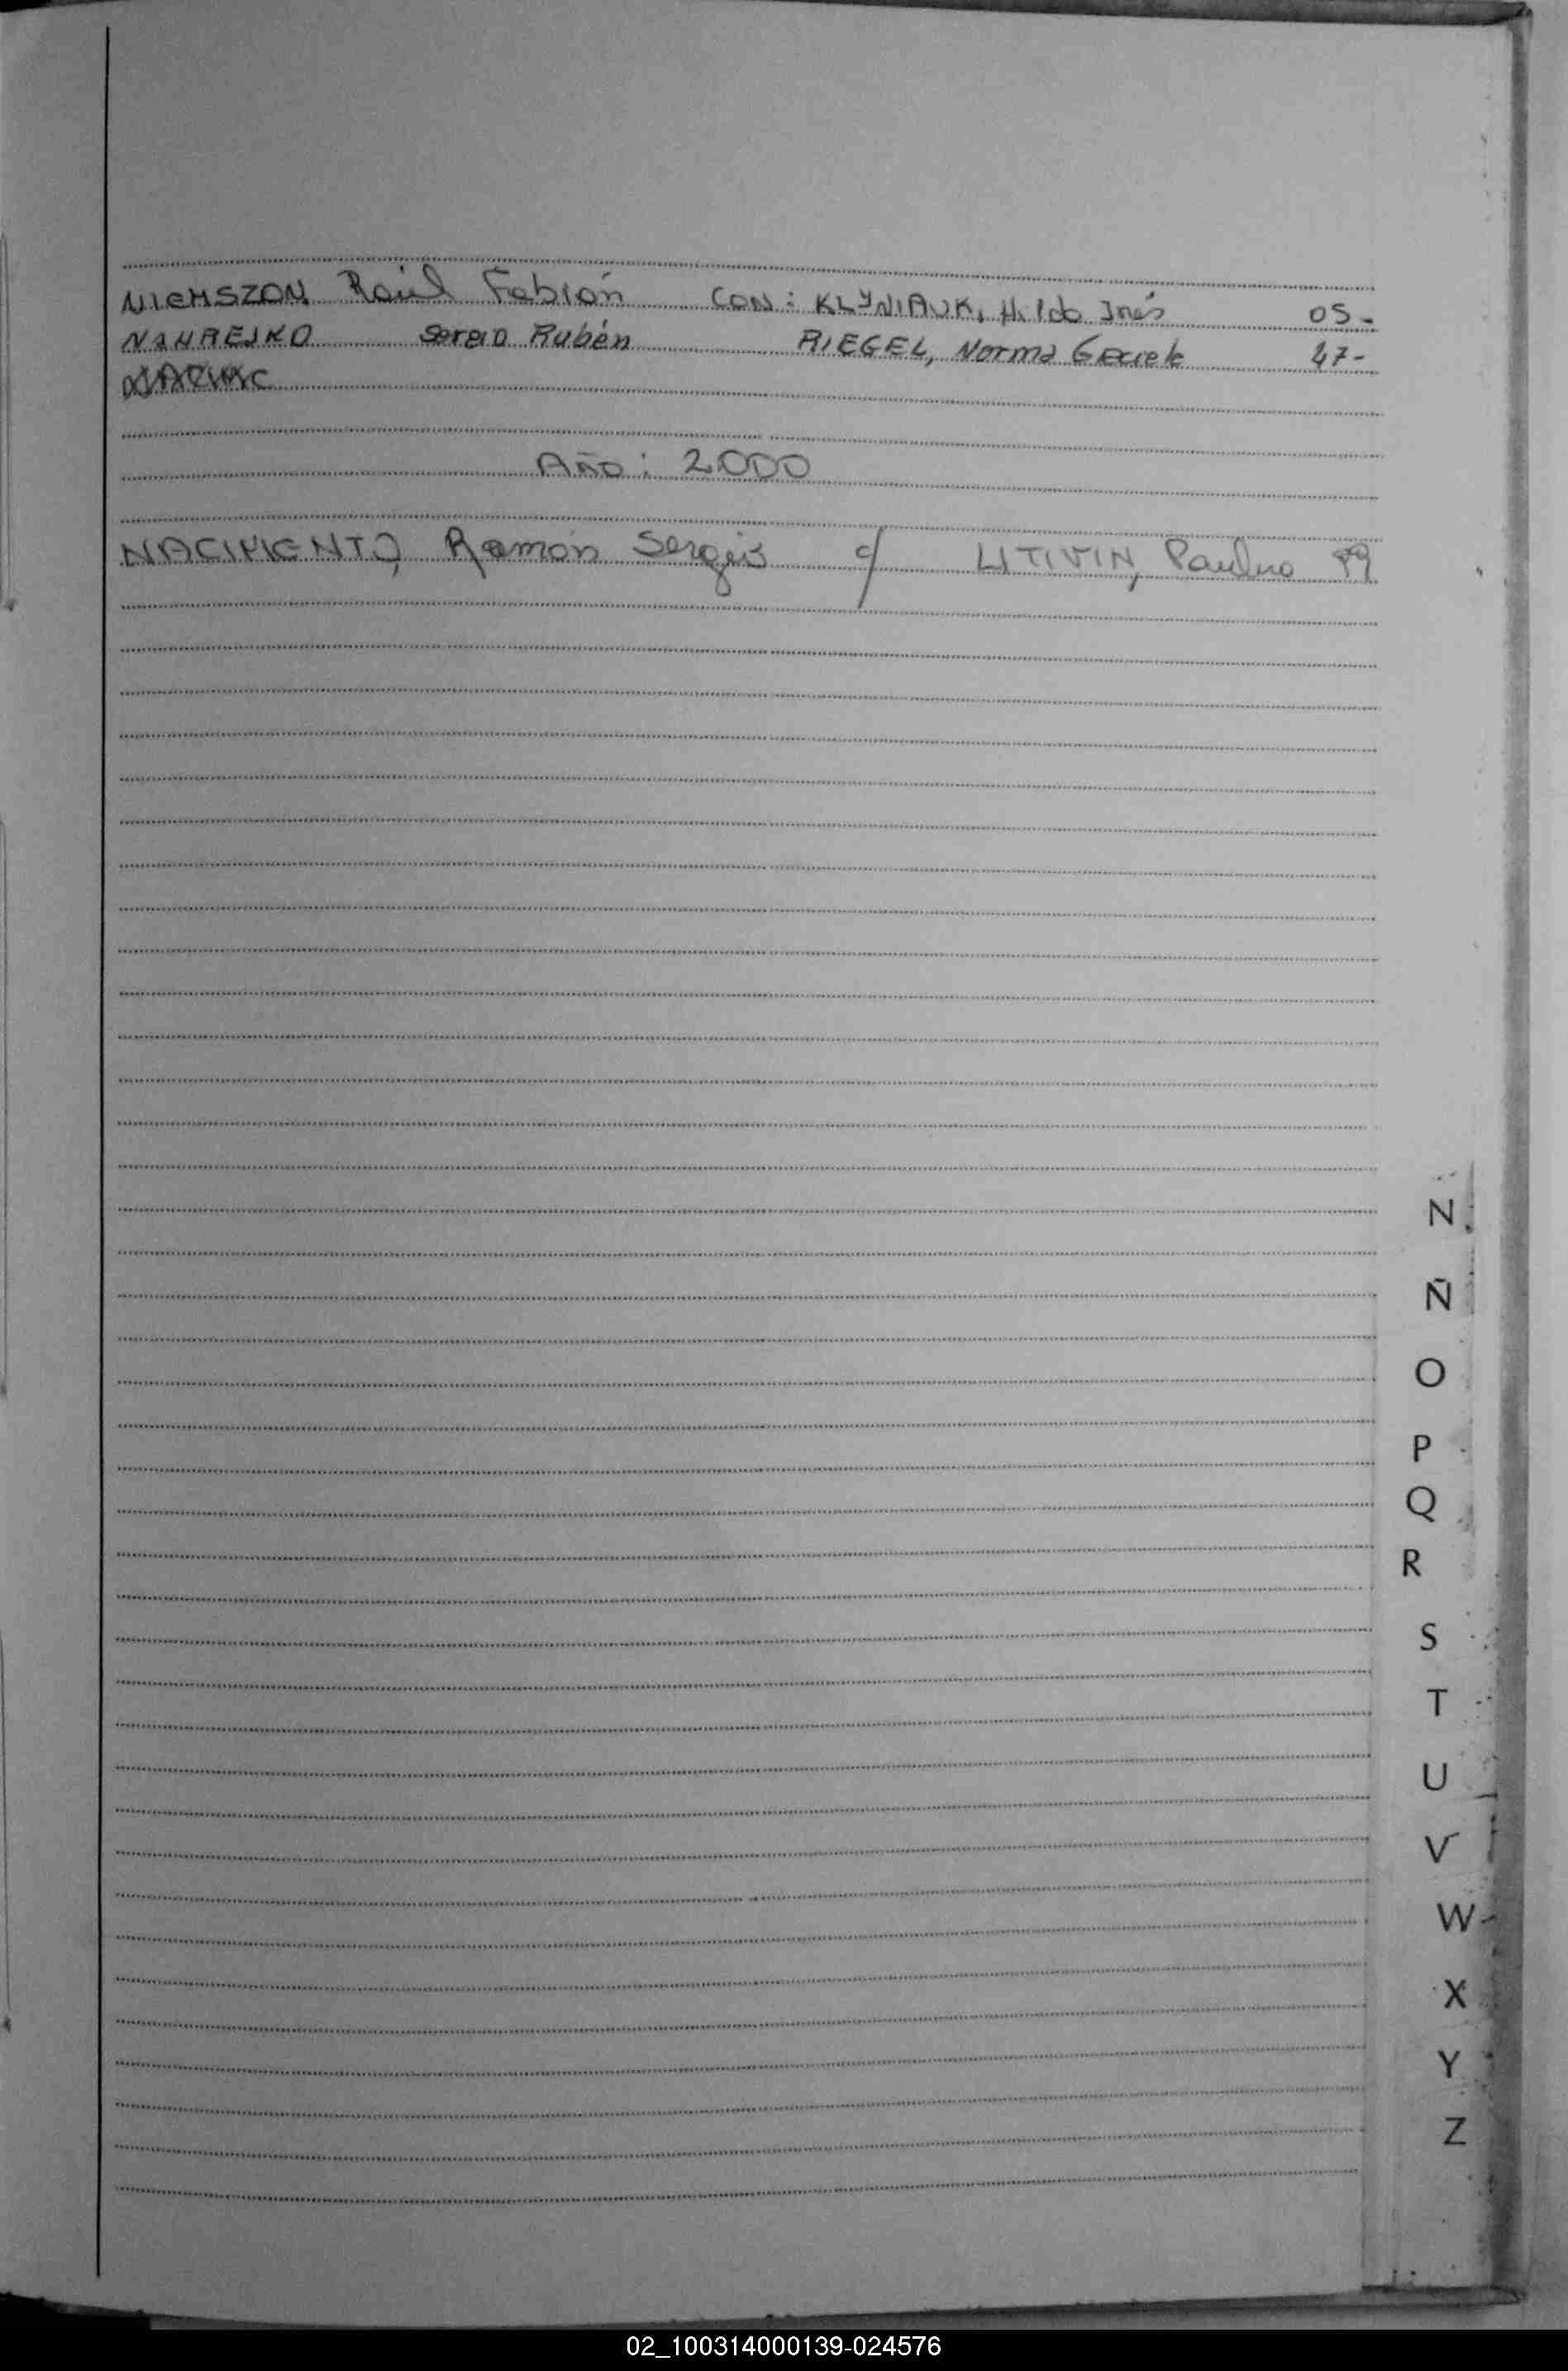 NIEMSZON, Raúl Fabián CON: KLYNIAUK, Hilda Inés 05-
NAHREJKO Sergio Rubén RIEGEL, Norma 47-
Año: 2.000
NACIMIENTO, Ramón Sergio c/ LITIVIN, Paulina 99
N
Ñ
O
P
Q
R
S
T
U
V
W
X
Y
Z
02_100314000139-024576